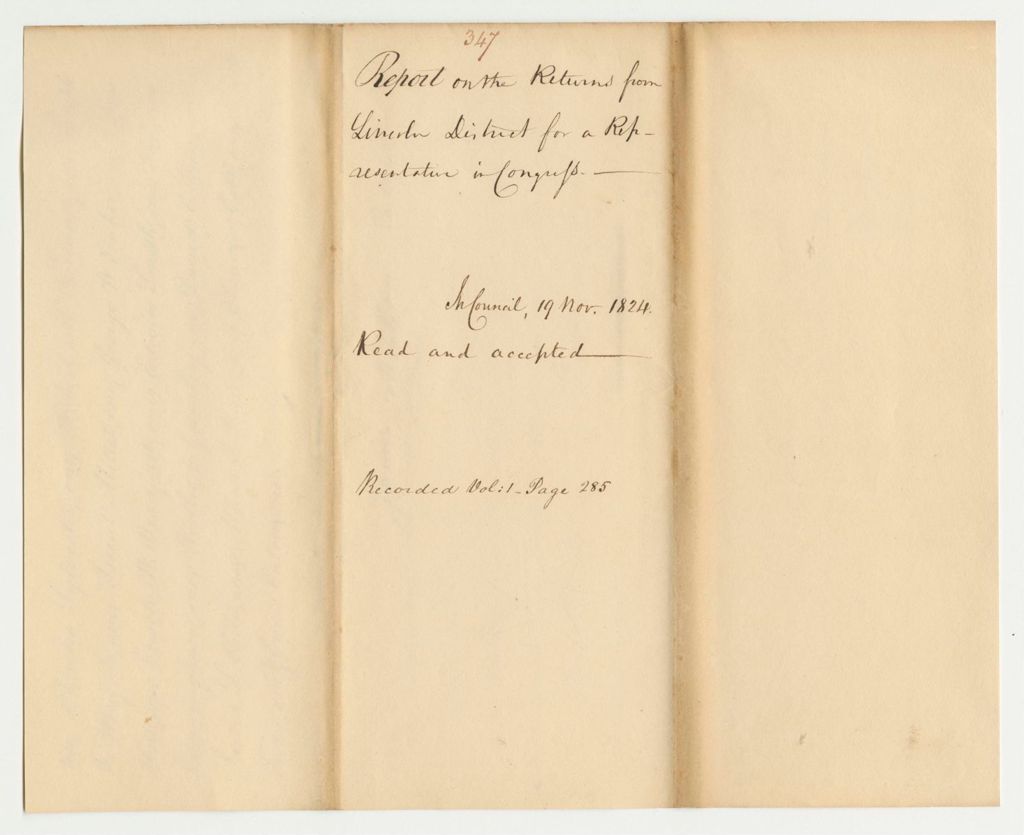 347
Report on the Returns from
Lincoln District for a Rep-
resentative in Congress.
In Council, 19 Nov. 1824.
Read and accepted
Recorded Vol: 1 - Page 285